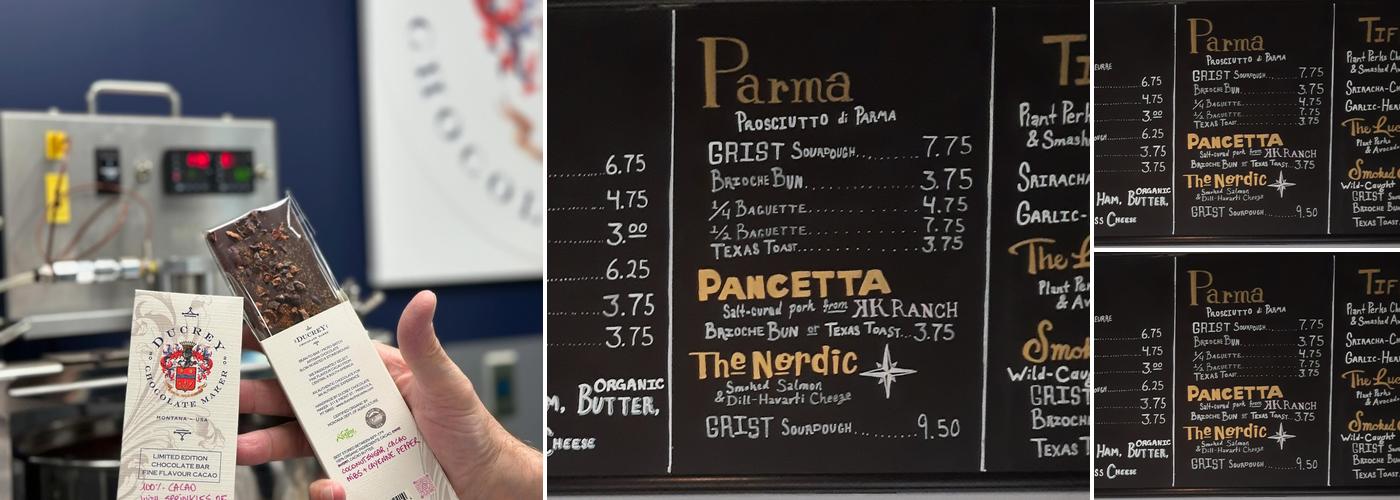 CHOCOL
DUCREY
CHOCOLATE MAKER
MONTANA - USA
LIMITED EDITION
CHOCOLATE BAR
FINE FLAVOUR CACAO
100% CACAO
WITH SPRINKLES OF
DUCREY
CHOCOLATE MAKER
COCONUT SUGAR, CACAO
NIBS + CAYENNE PEPPER
6.75
4.75
3.00
6.25
3.75
3.75
ORGANIC
M, BUTTER,
CHEESE
Parma
PROSCIUTTO di PARMA
GRIST SOURDOUGH......7.75
BRIOCHE BUN..........3.75
1/4 BAGUETTE..........4.75
1/2 BAGUETTE..........7.75
TEXAS TOAST..........3.75
PANCETTA
Salt-cured pork from KK RANCH
BRIOCHE BUN or TEXAS TOAST..3.75
The Nordic
Smoked Salmon
& Dill-Havarti Cheese
GRIST SOURDOUGH........9.50
TI
Plant Perk
& Smash
SRIRACHA
GARLIC-
The L
Plant Per
& Av
Smok
Wild-Caug
GRIST
BRIOCH
TEXAS T
6.75
4.75
3.00
6.25
3.75
3.75
ORGANIC
HAM, BUTTER,
SS CHEESE
Parma
PROSCIUTTO di PARMA
GRIST SOURDOUGH......7.75
BRIOCHE BUN..........3.75
1/4 BAGUETTE..........4.75
1/2 BAGUETTE..........7.75
TEXAS TOAST..........3.75
PANCETTA
Salt-cured pork from KK RANCH
BRIOCHE BUN or TEXAS TOAST..3.75
The Nordic
Smoked Salmon
& Dill-Havarti Cheese
GRIST SOURDOUGH........9.50
TIF
Plant Perks Ch
& Smashed Av
SRIRACHA-C
GARLIC-HER
The Lu
Plant Perks
& Avocad
Smoked
Wild-Caught
GRIST Sour
BRIOCHE Bu
TEXAS TOAST
6.75
4.75
3.00
6.25
3.75
3.75
ORGANIC
HAM, BUTTER,
SS CHEESE
Parma
PROSCIUTTO di PARMA
GRIST SOURDOUGH......7.75
BRIOCHE BUN..........3.75
1/4 BAGUETTE..........4.75
1/2 BAGUETTE..........7.75
TEXAS TOAST..........3.75
PANCETTA
Salt-cured pork from KK RANCH
BRIOCHE BUN or TEXAS TOAST..3.75
The Nordic
Smoked Salmon
& Dill-Havarti Cheese
GRIST SOURDOUGH........9.50
TIF
Plant Perks Ch
& Smashed Av
SRIRACHA-C
GARLIC-HER
The Lu
Plant Perks
& Avocad
Smoked
Wild-Caught
GRIST Sour
BRIOCHE Bu
TEXAS TOAST